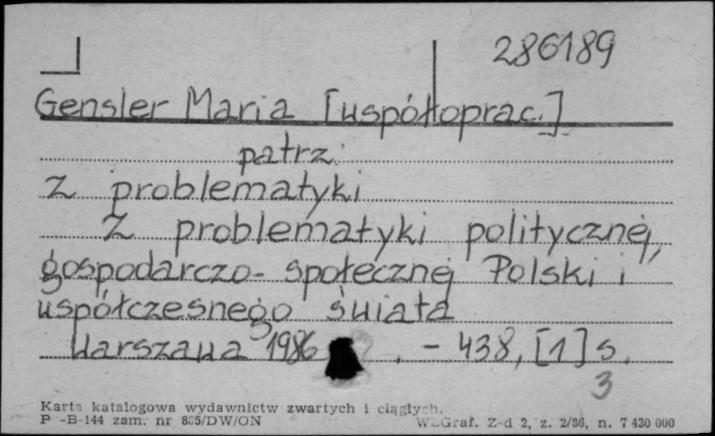 286189
Gensler Maria [współoprac.]
patrz:
Z problematyki
Z problematyki politycznej,
gospodarczo-społecznej Polski i
współczesnego świata
Warszawa 1986 . - 438, [1] s.
3
Karta katalogowa wydawnictw zwartych i ciągłych.
P -B-144 zam. nr 885/DW/ON W.Z.Graf. Z-d 2, z. 2/86, n. 7 430 000